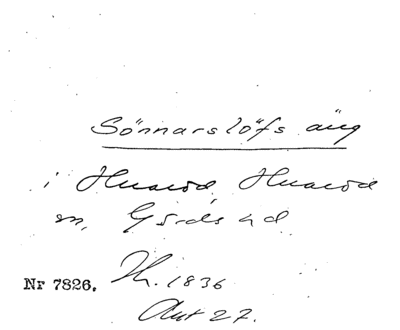 Sönnarslöfs äng
i Huaröd, Huaröd
sn, Gärds hd
Nr 7826. Th. 1836
Akt 27.